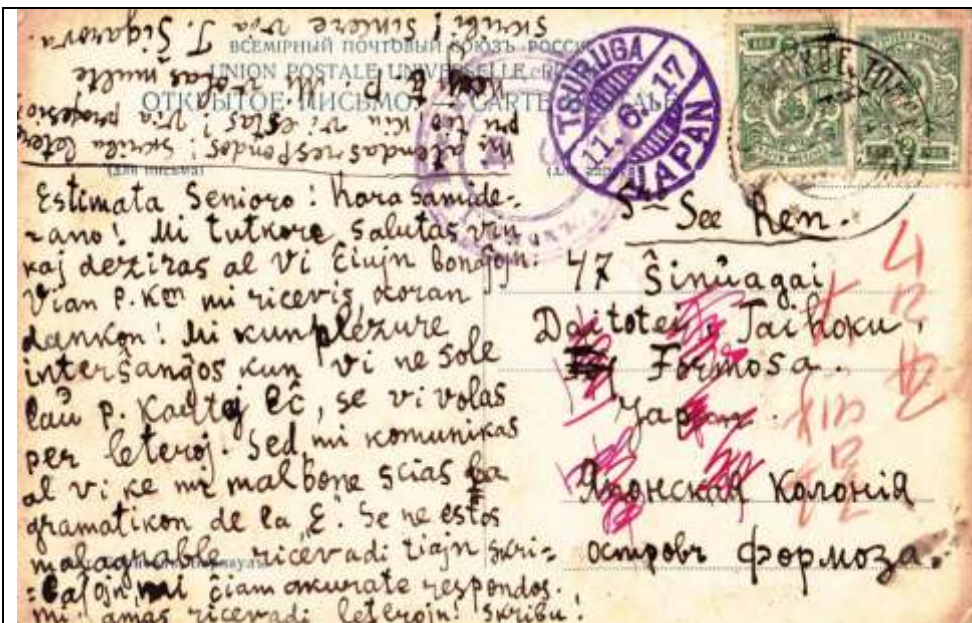 ВСЕМІРНЫЙ ПОЧТОВЫЙ СОЮЗЪ. РОССІЯ
UNION POSTALE UNIVERSELLE.
ОТКРЫТОЕ ПИСЬМО — CARTE POSTALE
(для письма)
TSURUGA
11.6.17
JAPAN
Mi atendas respondos! skribu leter
pri tio, kiu vi estas! via profesio
P. M. volas multe
skribi! sincere via T. Sigarova.
Estimata Senioro! Kora samide-
-ano! Mi tutkore salutas vin
kaj deziras al vi ĉiujn bonajojn.
Vian P.K-on mi ricevis, koran
dankon! Mi kun plezure
interŝanĝos kun vi ne sole
laŭ p. kartoj eĉ, se vi volas
per leteroj. Sed mi komunikas
al vi ke mi malbone scias la
gramatikon de la E. Se ne estos
malagrable ricevadi tiajn skri-
-baĵojn mi ĉiam akurate respondos.
Mi amas ricevadi leterojn! skribu!
S-ro See Ren.
47 Ŝinŭagai
Daitotei, Taihoku,
Formosa.
Japan.
Японская Колонія
островъ Формоза.